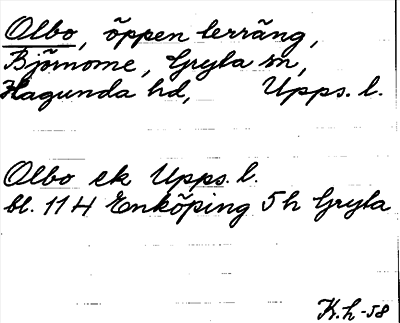 Olbo, öppen lerräng,
Björnome, Gryta sn,
Hagunda hd, Upps. l.
Olbo ek Upps. l.
bl. 114 Enköping 5h Gryta
K.h -58